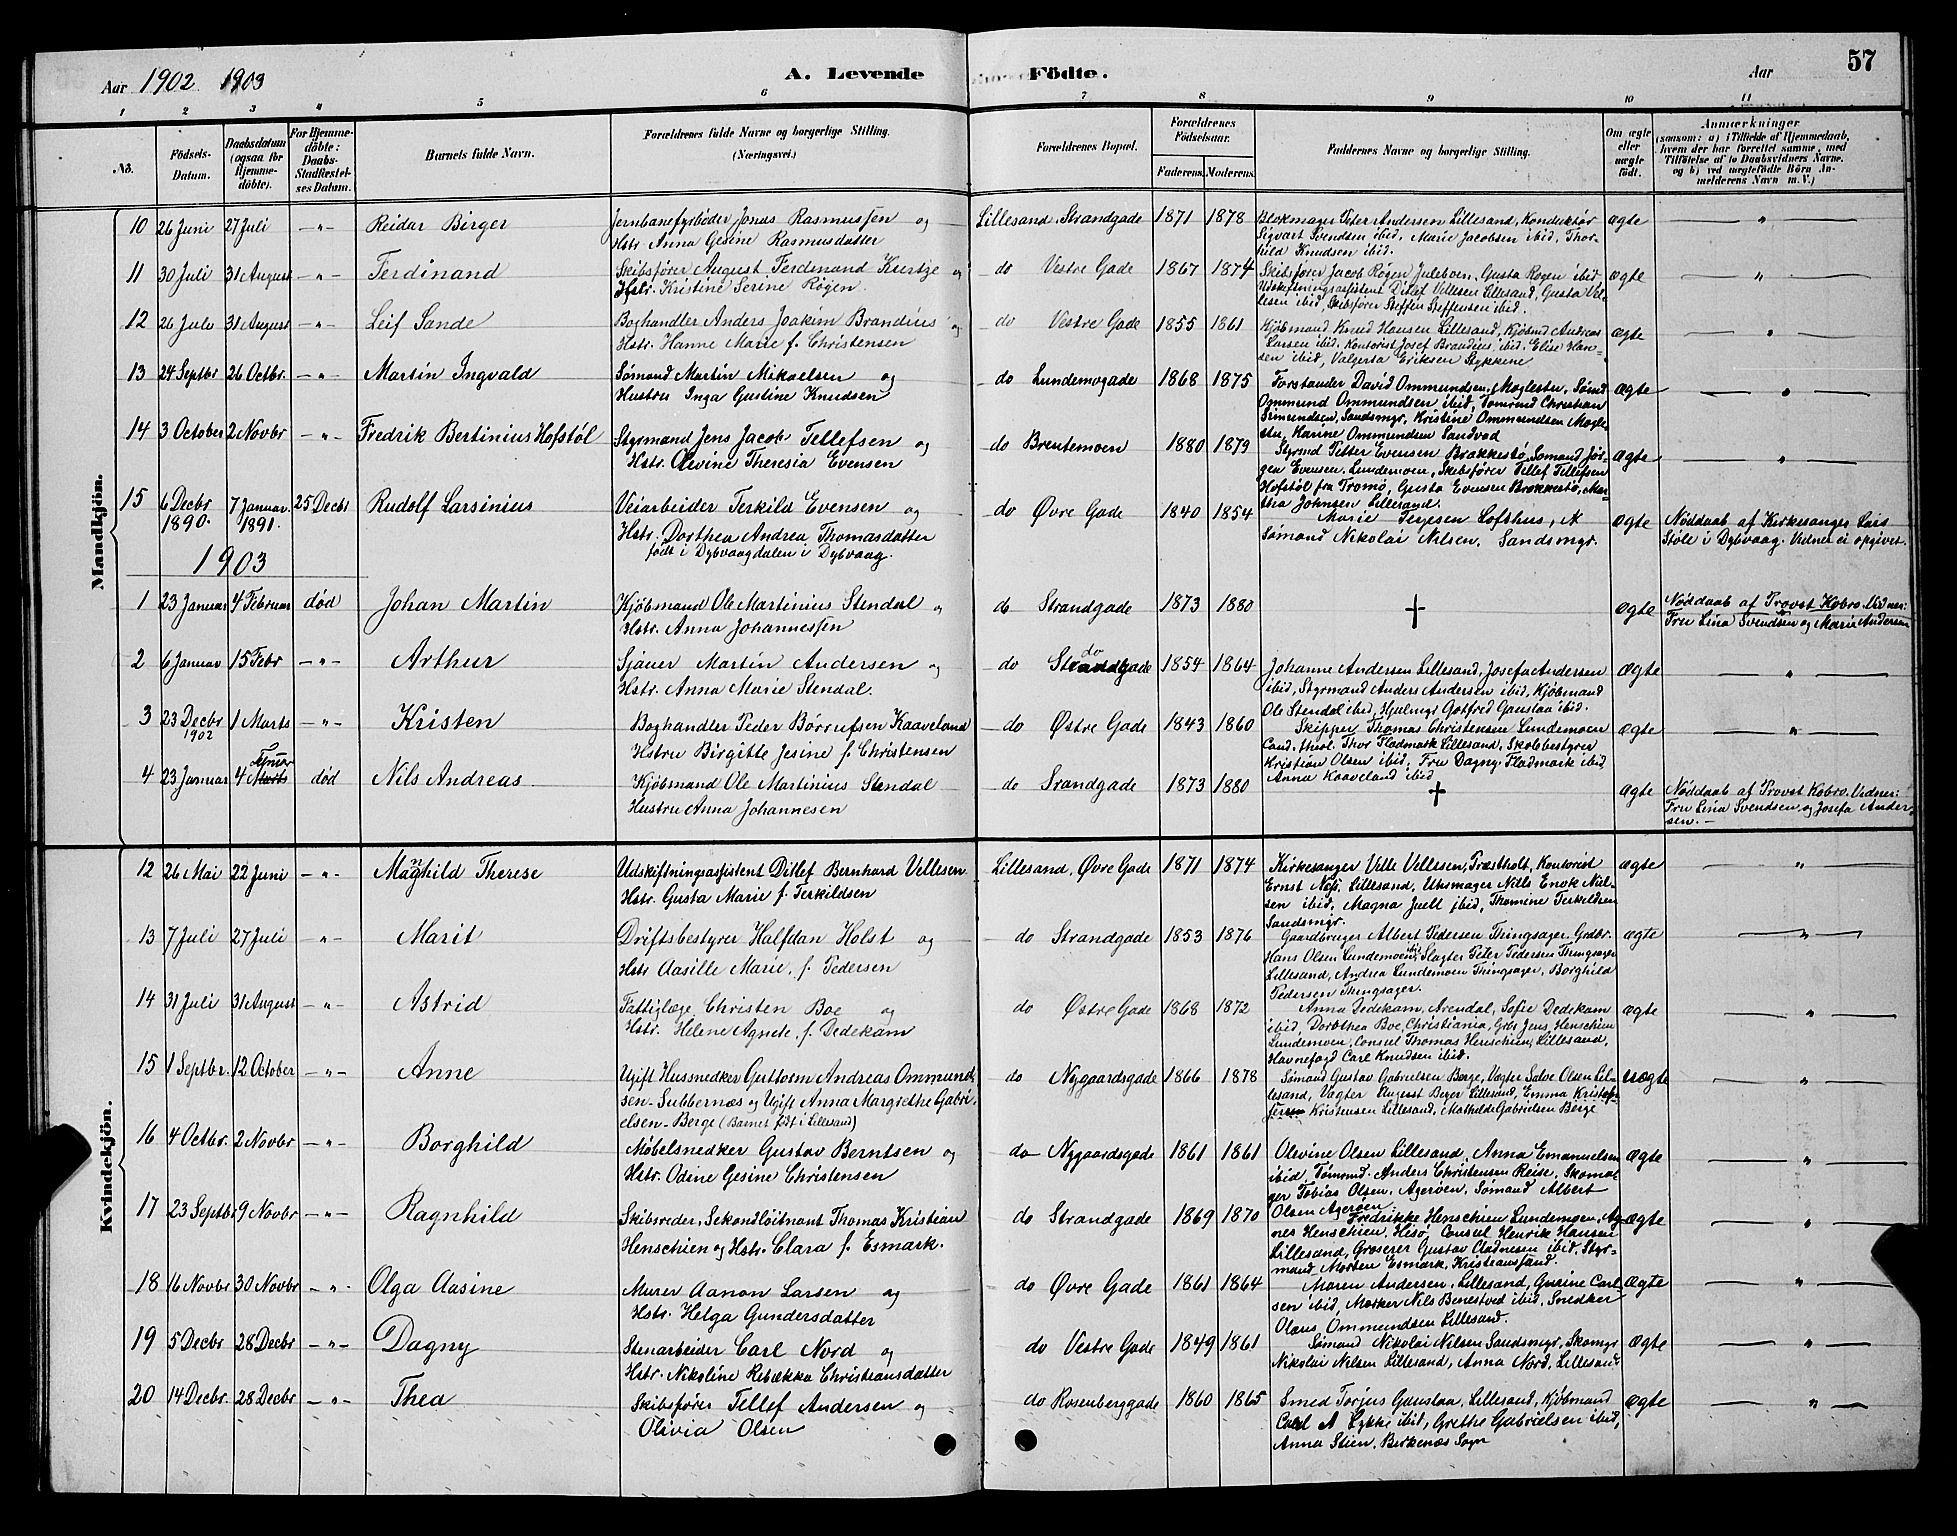 57
Aar 1902 1903 A. Levende Födte. Aar
1 2 3 4 5 6 7 8 9 10 11
No. Födsels-Datum. Daabsdatum (ogsaa for Hjemmedöbte). For Hjemmedöbte: Daabs-Stadfæstelses Datum. Barnets fulde Navn. Forældrenes fulde Navne og borgerlige Stilling. (Næringsvei.) Forældrenes Bopæl. Forældrenes Födselsaar. Faderens. Moderens. Faddernes Navne og borgerlige Stilling. Om ægte eller uægte födt. Anmærkninger (saasom: a) i Tilfælde af Hjemmedaab, hvem der har forrettet samme, med Tilföielse af to Daabsvidners Navne. og b) ved uægtefödte Börn Anmelderens Navn m. V.)
Mandkjön.
10 26 Juni 27 Juli -"- Reidar Birger Jernbanefyrbøder Jonas Rasmussen og Lillesand, Strandgade 1871 1878 Blokmager Peter Andersen Lillesand, Konduktør ægte "
Hstr. Anna Gesine Rasmusdatter Sigvart Svendsen ibid, Marie Jacobsen ibid, Thor-
hild Knudsen ibid.
11 30 Juli 31 August -"- Ferdinand Skibsfører August Ferdinand Kurtze og do Vestre Gade 1867 1874 Skibsfører Jacob Røgen Juleboen, Gusta Røgen ibid ægte "
Hstr. Kristine Serine Røgen. Udskiftningsassistent Ditlef Vellesen Lillesand, Gusta Vel-
lesen ibid, Skibsfører Steffen Steffensen ibid.
12 26 Juli 31 August -"- Leif Sande Boghandler Anders Joakim Brandius og do Vestre Gade 1855 1861 Kjøbmand Knud Hansen Lillesand, Kjøbmd Andreas ægte "
Hstr. Hanne Marie f. Christensen Larsen ibid. Kontorist Josef Brandius ibid. Elise Han-
sen ibid, Valgerta Eriksen Stykkene
13 24 Septbr 26 Octbr. -"- Martin Ingvald Sømand Martin Mikaelsen og do Lundemogade 1868 1875 Forstander David Ommundsen, Moglestu, Sømd ægte "
Hustru Inga Gustine Knudsen Ommund Ommundsen ibid, Tømrmd Christian
Simundsen, Sandsmgr, Kristine Ommundsen Mogle-
stu, Karine Ommundsen Sandvad
14 3 October 2 Novbr -"- Fredrik Bertinius Hofstøl Styrmand Jens Jacob Tellefsen og do Brentemoen 1880 1879 Styrmd Petter Evensen Brækkestø, Sømand Jør- ægte "
Hstr. Olevine Theresia Evensen gen Evensen, Lundemoen, Skibsfører Tellef Tellefsen
Hofstøl fra Tromø, Gusta Evensen Brækkestø, Mar-
tha Johnsen Lillesand.
15 6 Decbr 1890. 7 Januar 1891. 25 Decbr Rudolf Larsinius Veiarbeider Terkild Evensen og do Øvre Gade 1840 1854 Marie Terjesen Lofthus, A ægte Nøddaab af Kirkesanger Lars
Hstr. Dorthea Andrea Thomasdatter Sømand Nikolai Nilsen, Sandsmgr. Støle i Dybvaag. Vidner ei opgivet.
født i Dybvaagdalen i Dybvaag.
1903
1 23 Januar 4 Februar død Johan Martin Kjøbmand Ole Martinius Stendal og do Strandgade 1873 1880 + ægte Nøddaab af Provst Kobro. Vidner:
Hstr. Anna Johannessen Fru Lina Svendsen og Marie Andersen
2 6 Januar 15 Febr -"- Arthur Sjauer Martin Andersen og do do Strandgade 1854 1864 Johanne Andersen Lillesand, Josefa Andersen ægte "
Hstr. Anna Marie Stendal. ibid, Styrmand Anders Andersen ibid, Kjøbmand
Ole Stendal ibid, Hjulmgr Gotfred Gaustaa ibid.
3 23 Decbr 1902 1 Marts -"- Kristen Boghandler Peder Børrufsen Kaaveland do Østre Gade 1843 1860 Skipper Thomas Christensen Lundemoen ægte "
Hstru Birgitte Jesine f. Christensen Cand. theol. Thor Fladmark Lillesand, Skolebestyrer
Kristian Olsen ibid, Fru Dagny Fladmark ibid,
Anna Kaaveland ibid
4 23 Januar 4 Marts død Nils Andreas Kjøbmand Ole Martinius Stendal do Srandgade 1873 1880 + ægte Nøddaab af Provst Kobro. Vidner:
Hustru Anna Johannesen Fru Lina Svendsen og Josefa Ander-
sen. -
Kvindekjön.
12 26 Mai 22 Juni -"- Magnhild Therese Udskiftningsassistent Ditlef Bernhard Vellesen Lillesand, Øvre Gade 1871 1874 Kirkesanger Velle Vellesen, Præstholt, Kontorist ægte "
Hstr. Gusta Marie f. Terkildsen Ernst Næs, Lillesand, Uhrmager Nills Enok Niel-
sen ibid, Magna Juell ibid, Thomine Terkildsen
Sandsmgr.
13 7 Juli 27 Juli -"- Marit Driftsbestyrer Halfdan Holst og do Strandgade 1853 1876 Gaardbruger Albert Pedersen Thingsager, Grdbr. ægte "
Hstr Aasille Marie, f. Pedersen Hans Olsen Lundemoen, ibid Slagter Peter Pedersen Thingsager
Lillesand, Andrea Lundemoen Thingsager, Borghild
Pedersen Thingsager.
14 31 Juli 31 August -"- Astrid Fattiglæge Christen Boe og do Østre Gade 1868 1872 Anna Dedekam, Arendal, Sofie Dedekam ægte "
Hstr. Helene Agnete f. Dedekam ibid, Dorothea Boe, Christiania, Grøs Jens Henschien
Lundemoen, Consul Thomas Henschien, Lillesand,
Havnefogd Carl Knudsen ibid.
15 1 Septbr. 12 October -"- Anne Ugift Hussnedker Guttorm Andreas Ommund- do Nygaardsgade 1866 1878 Sømand Gustav Gabrielsen Berge, Vagter Salve Olsen Lil- uægte "
sen - Subbernæs og Ugift Anna Margrethe Gabri- lesand, Vagter August Beyer Lillesand, Emma
elsen - Berge (Barnet født i Lillesand) Kristensen Lillesand, Mathilde Gabrielsen Berge
16 4 Octbr. 2 Novbr -"- Borghild Møbelsnedker Gustav Berntsen og do Nygaardsgade 1861 1861 Olevine Olsen Lillesand, Anna Emanuelsen ægte "
Hstr. Odine Gesine Christensen ibid, Tømmd. Anders Christensen Reise, Skoma-
ger Tobias Olsen, Agerøen, Sømand Albert
Olsen Agerøen.
17 23 Septbr 9 Novbr -"- Ragnhild Skibsreder, Sekondløitnant Thomas Kristian do Strandgade 1869 1870 Fredrikke Henschien Lundemoen, Ag- ægte "
Henschien og Hstr. Clara f. Esmark. nes Henschien, Hisø, Consul Henrik Hansen
Lillesand, Groserer Gustav Cladnesen ibid, Styr-
mand Morten Esmark, Kristianssand.
18 16 Novbr 30 Novbr -"- Olga Aasine Murer Aanon Larsen og do Øvre Gade 1861 1864 Maren Andersen, Lillesand, Gusine Carl- ægte "
Hstr. Helga Gundersdatter sen ibid, Mærker Nils Benestved ibid, Snedker
Olaus Ommundsen Lillesand.
19 5 Decbr 28 Decbr -"- Dagny Stenarbeider Carl Nord og do Vestre Gade 1849 1861 Sømand Nikolai Nilsen Sandsmgr, Skomgr ægte "
Hstr. Nikoline Rebækka Christiansdatter Nikolai Nilsen Lillesand, Anna Nord, Lillesand
20 14 Decbr. 28 Decbr -"- Thea Skibsfører Tellef Andersen og do Rosenberggade 1860 1865 Smed Torjus Gaustaa, Lillesand, Kjøbmand ægte "
Olivia Olsen Carl A Lykke ibid, Grethe Gabrielsen ibid,
Anna Stien, Birkenæs Sogn